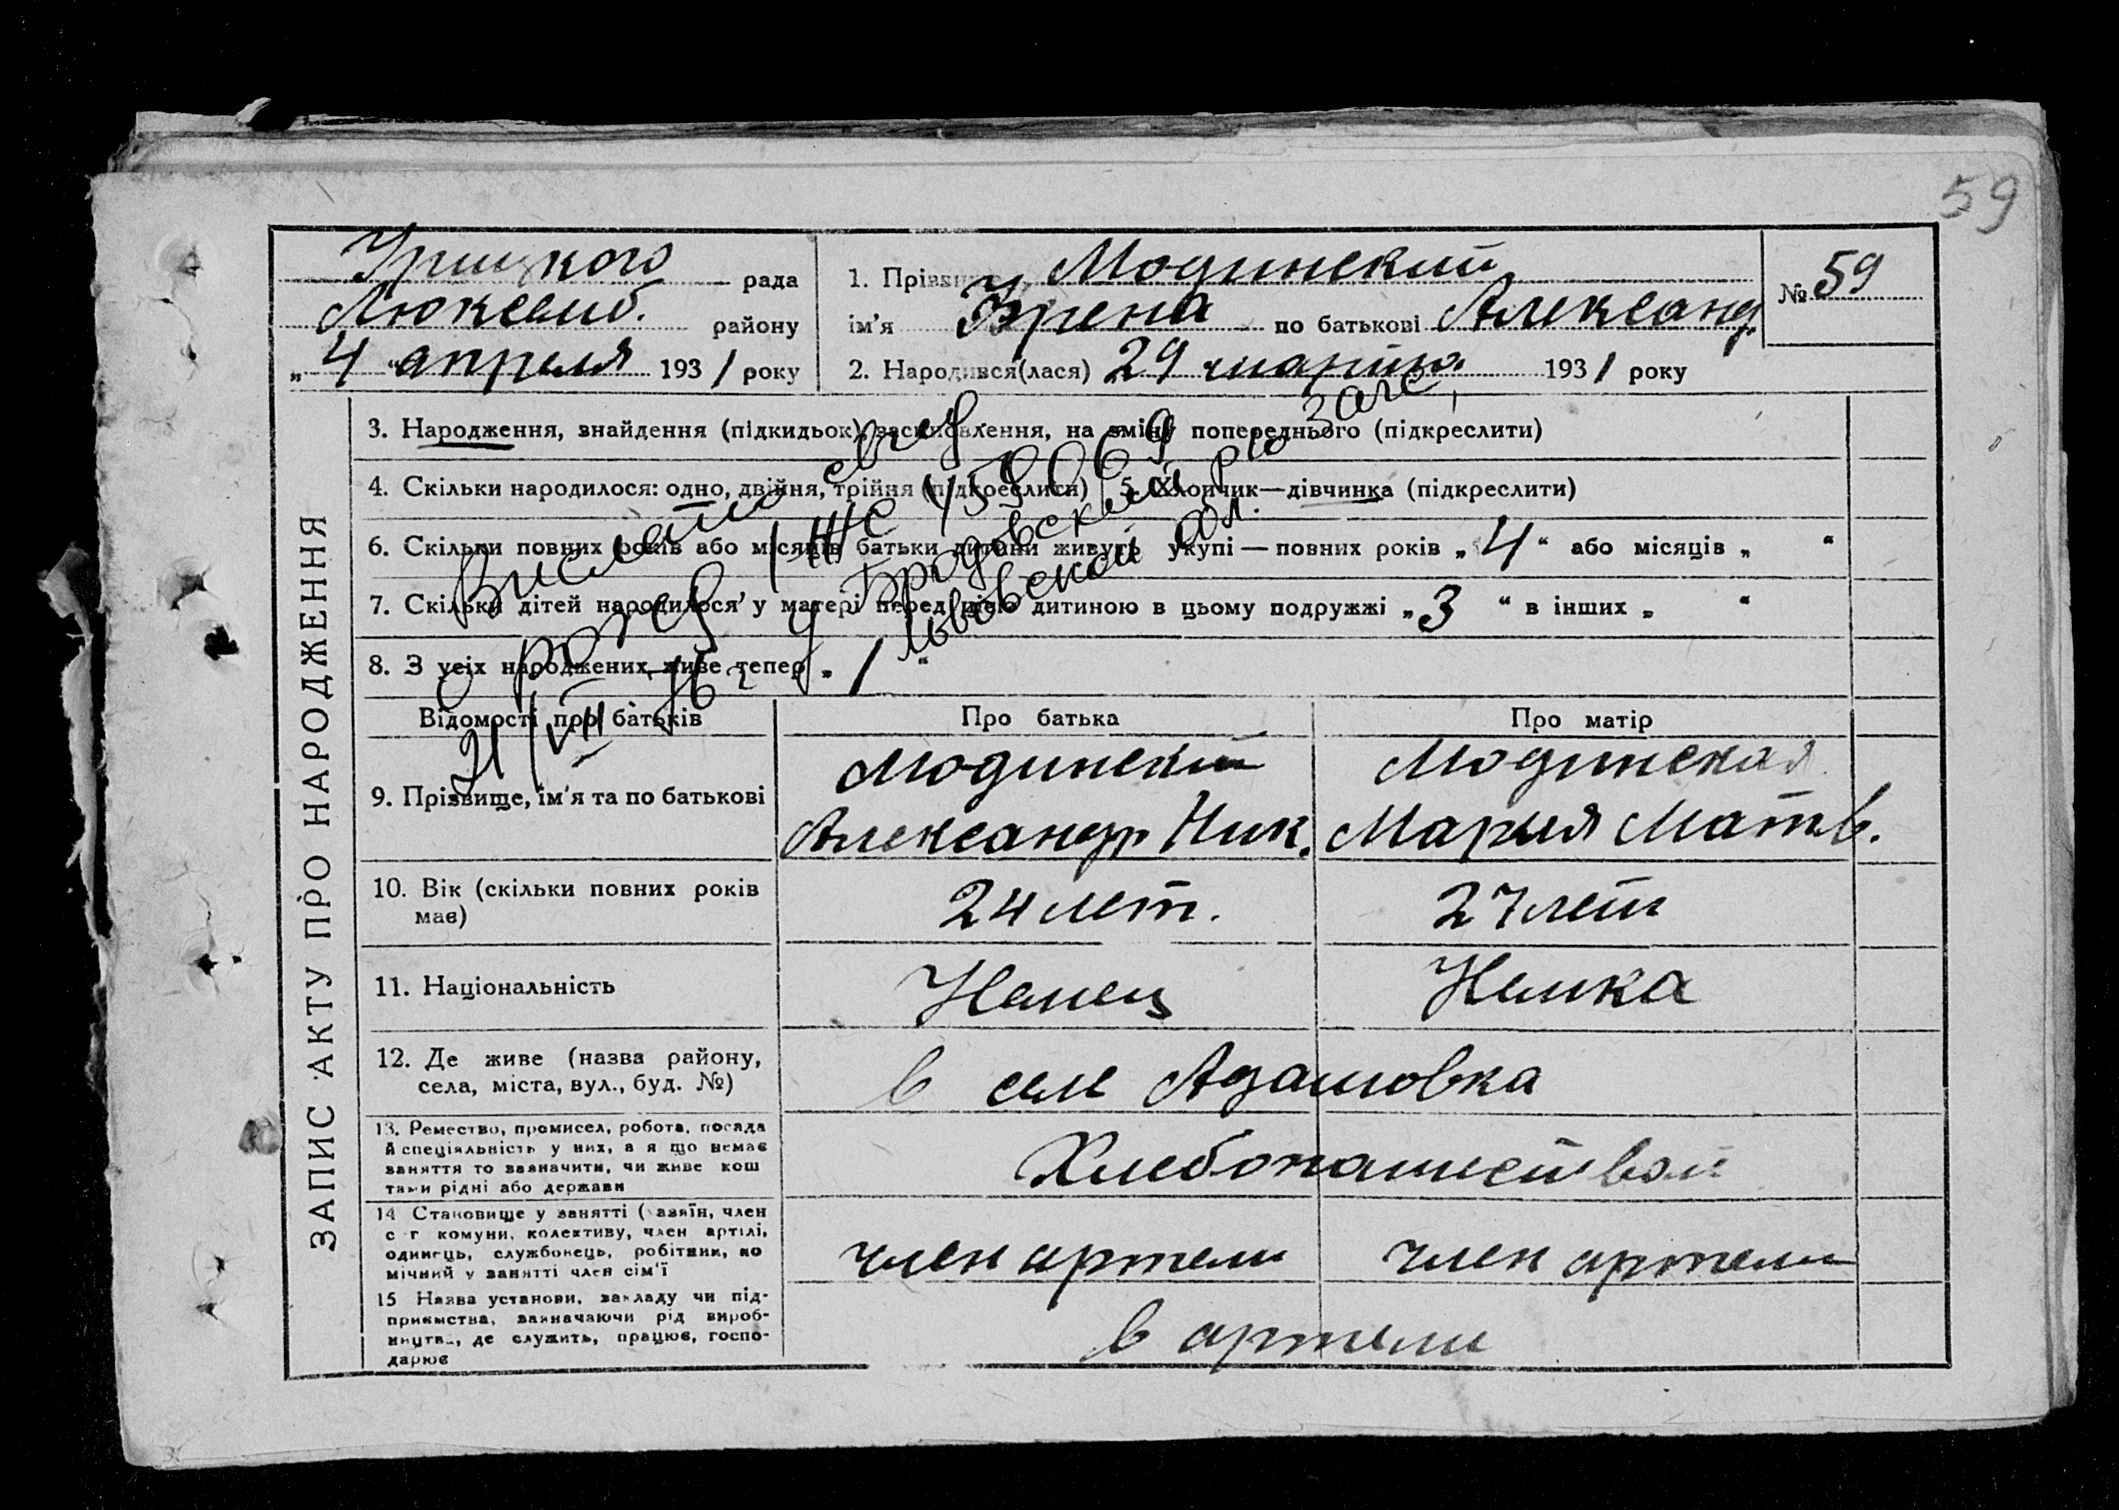 59
Урицкого рада
Люксемб. району
„ 4 “ апреля 1931 року
1. Прізвище Модинский
ім'я Ирена по батькові Александ
2. Народився(лася) 29 марта 1931 року
№ 59
ЗАПИС АКТУ ПРО НАРОДЖЕННЯ
3. Народження, знайдення (підкидьок), засиновлення, на зміну попереднього (підкреслити)
4. Скільки народилося: одно, двійня, трійня (підкреслити) 5. Хлопчик—дівчинка (підкреслити)
6. Скільки повних років або місяців батьки дитини живуть укупі — повних років „ 4 “ або місяців „ “
7. Скільки дітей народилося у матері перед цією дитиною в цьому подружжі „ 3 “ в інших „ “
8. З усіх народжених живе тепер „ 1 “
Выслано свид
о рожд 1 ЖС 459069
21/VIII 76 г у Бродовский р/о Загс,
Львовской обл.
Відомості про батьків
Про батька
Про матір
9. Прізвище, ім'я та по батькові
Модинский
Александр Ник.
Модинская
Мария Матв.
10. Вік (скільки повних років
має)
24 лет.
27 лет
11. Національність
Немец
Немка
12. Де живе (назва району,
села, міста, вул., буд. №)
в селе Адамовка
13. Ремество, промисел, робота, посада
й спеціяльність у них, а я що немає
заняття то зазначити, чи живе кош
тами рідні або держави
Хлебопашеством
14 Становище у занятті (хазяїн, член
с г комуни, колективу, член артілі,
одинець, службовець, робітник, по
мічний у занятті член сім'ї
член артели
член артели
15 Назва установи, закладу чи під-
приємства, зазначаючи рід вироб-
ництва, де служить, працює, госпо-
дарює
в артели